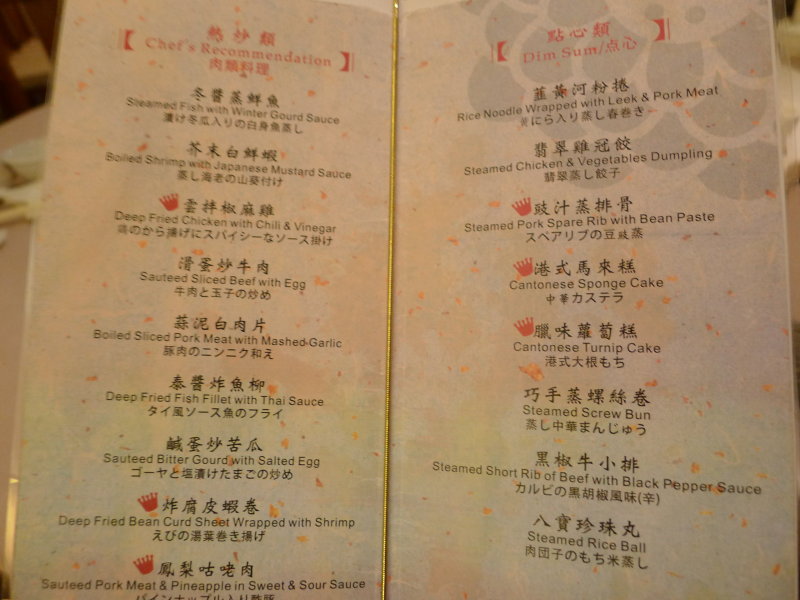 熱炒類
Chef's Recommendation
肉類料理
冬醬蒸鮮魚
Steamed Fish with Winter Gourd Sauce
漬け冬瓜入りの白身魚蒸し
芥末白鮮蝦
Boiled Shrimp with Japanese Mustard Sauce
蒸し海老の山葵付け
雲拌椒麻雞
Deep Fried Chicken with Chili & Vinegar
鶏のから揚げにスパイシーなソース掛け
滑蛋炒牛肉
Sauteed Sliced Beef with Egg
牛肉と玉子の炒め
蒜泥白肉片
Boiled Sliced Pork Meat with Mashed Garlic
豚肉のニンニク和え
泰醬炸魚柳
Deep Fried Fish Fillet with Thai Sauce
タイ風ソース魚のフライ
鹹蛋炒苦瓜
Sauteed Bitter Gourd with Salted Egg
ゴーヤと塩漬けたまごの炒め
炸腐皮蝦卷
Deep Fried Bean Curd Sheet Wrapped with Shrimp
えびの湯葉巻き揚げ
鳳梨咕咾肉
Sauteed Pork Meat & Pineapple in Sweet & Sour Sauce
パインナップル入り酢豚
點心類
Dim Sum/点心
韮黃河粉捲
Rice Noodle Wrapped with Leek & Pork Meat
黄にら入り蒸し春巻き
翡翠雞冠餃
Steamed Chicken & Vegetables Dumpling
翡翠蒸し餃子
豉汁蒸排骨
Steamed Pork Spare Rib with Bean Paste
スペアリブの豆豉蒸
港式馬來糕
Cantonese Sponge Cake
中華カステラ
臘味蘿蔔糕
Cantonese Turnip Cake
港式大根もち
巧手蒸螺絲卷
Steamed Screw Bun
蒸し中華まんじゅう
黑椒牛小排
Steamed Short Rib of Beef with Black Pepper Sauce
カルビの黒胡椒風味(辛)
八寶珍珠丸
Steamed Rice Ball
肉団子のもち米蒸し